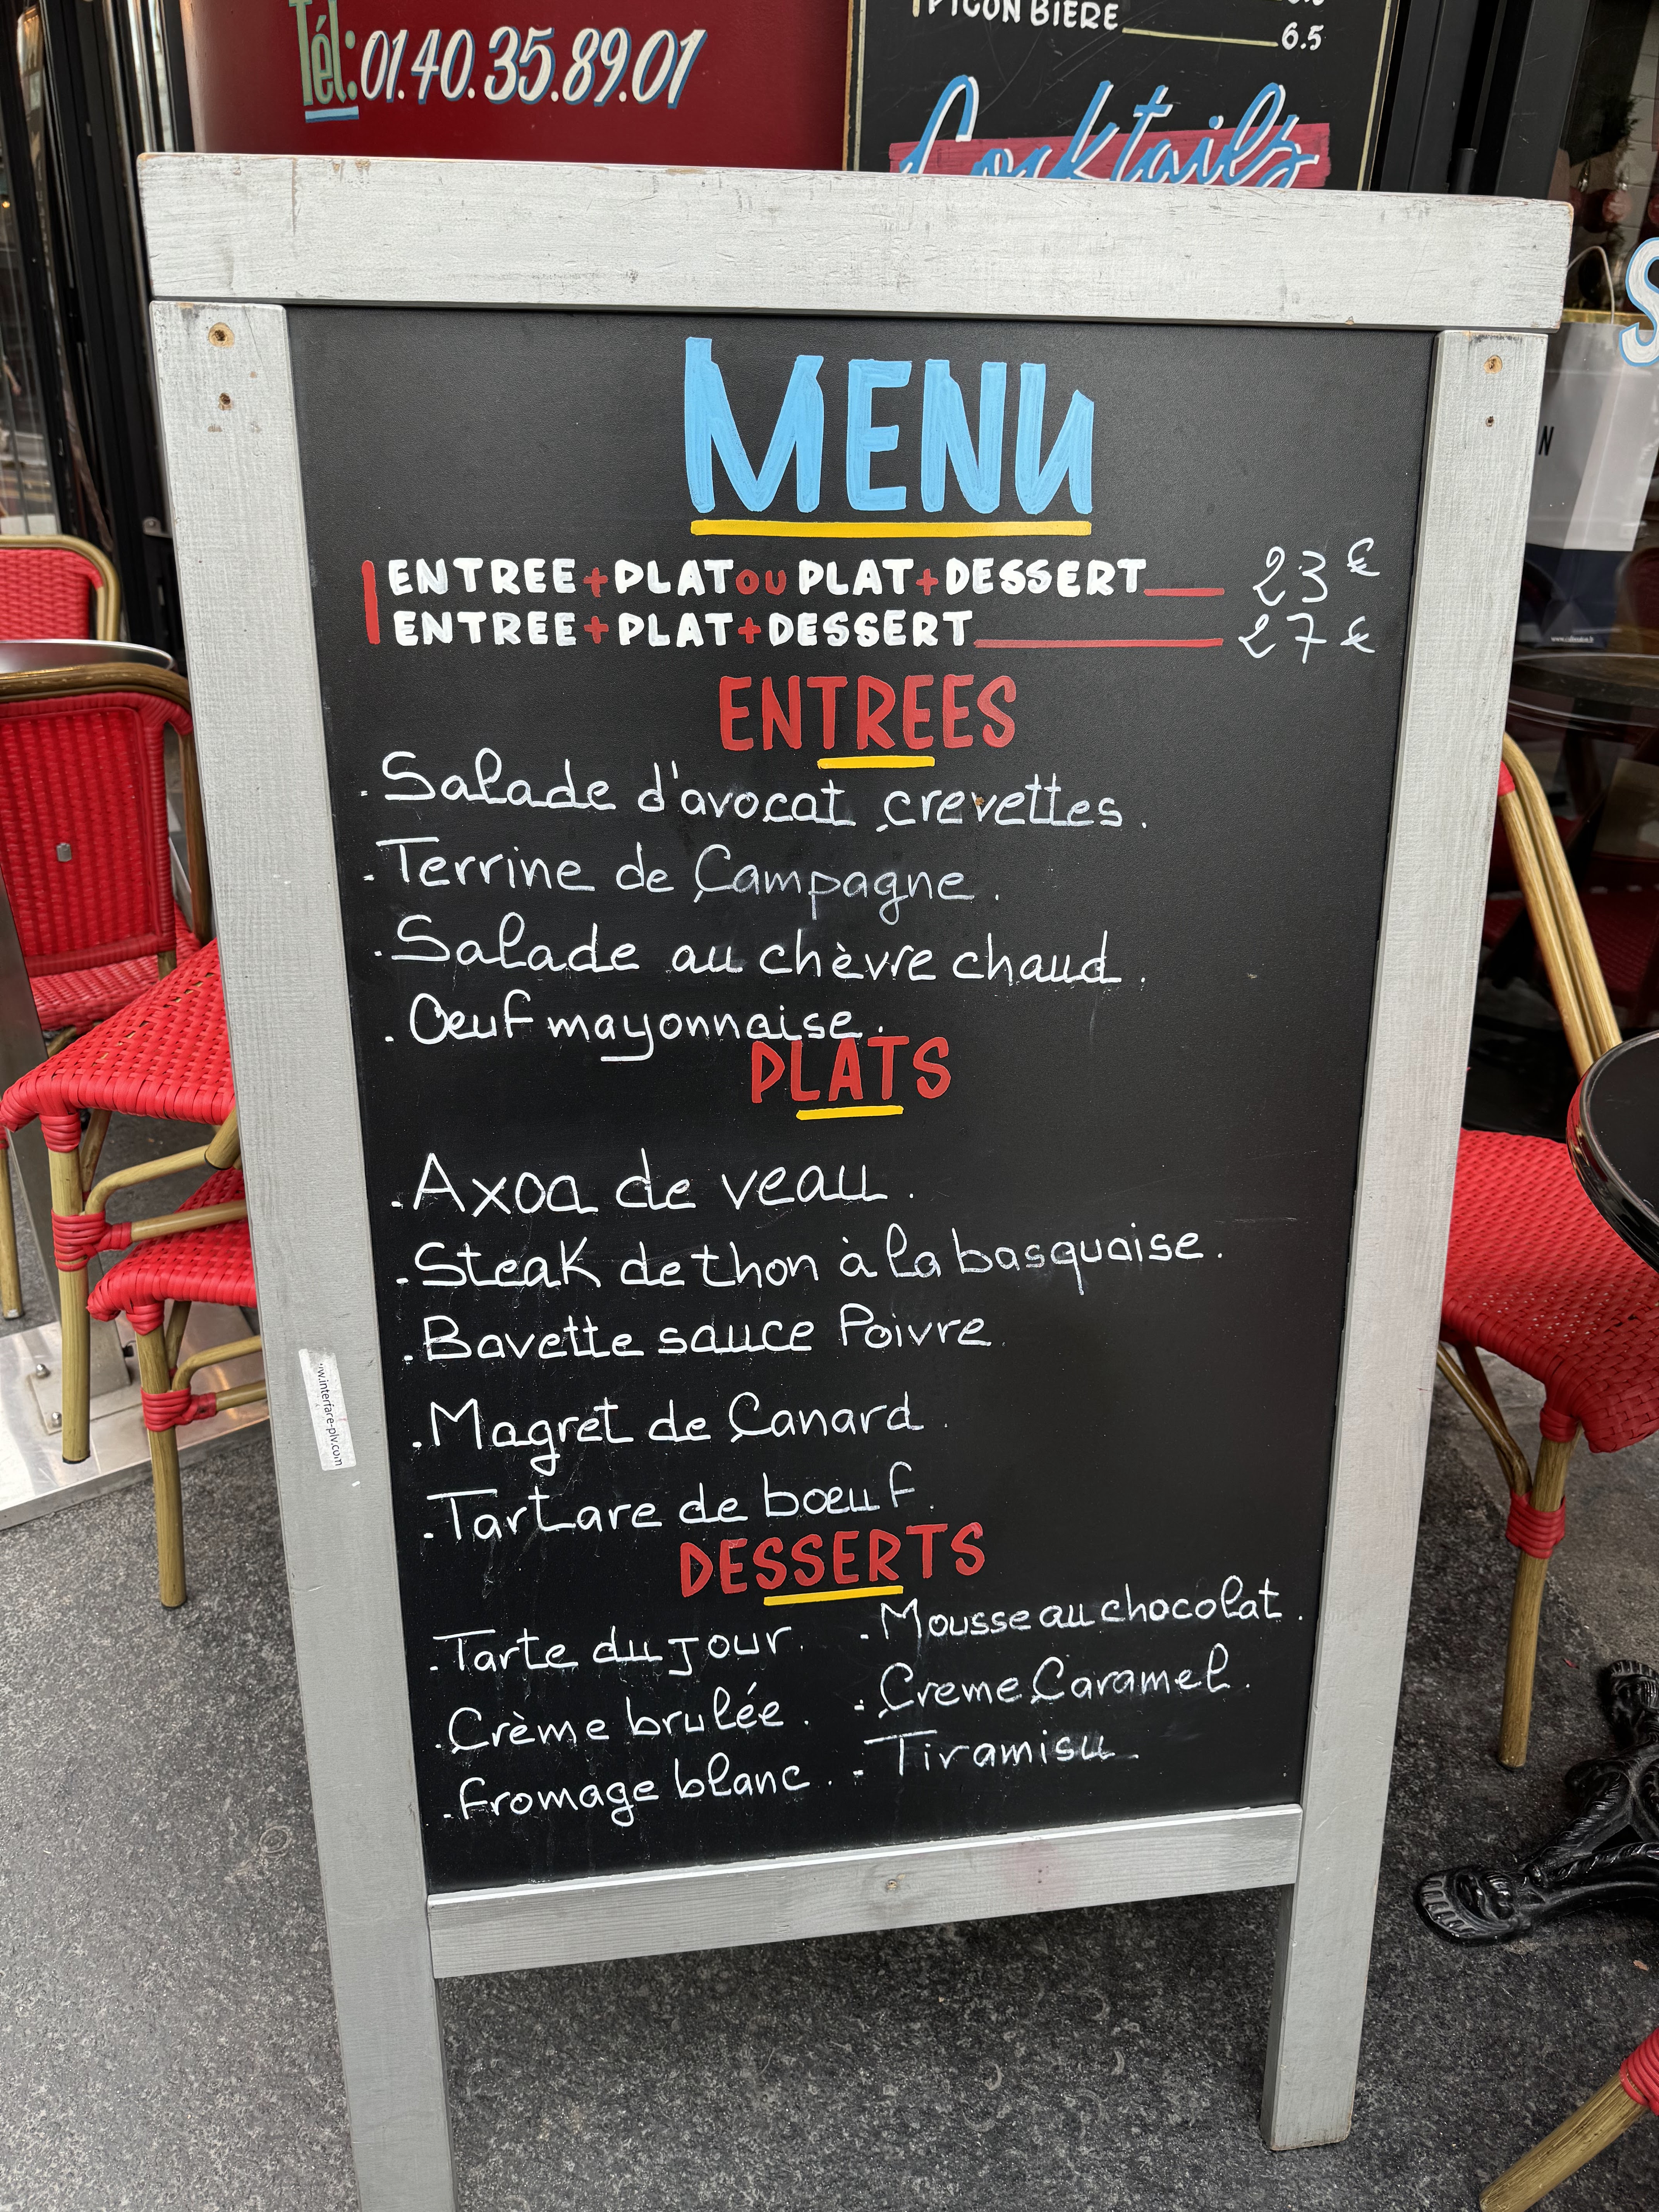 Tél: 01.40.35.89.01
PICON BIÈRE 6.5
Cocktails
MENU
ENTREE+PLAT OU PLAT+DESSERT 23 €
ENTREE+PLAT+DESSERT 27 €
ENTREES
. Salade d'avocat crevettes.
. Terrine de Campagne.
. Salade au chèvre chaud.
. Oeuf mayonnaise.
PLATS
. Axoa de veau.
. Steak de thon à la basquaise.
. Bavette sauce Poivre
. Magret de Canard.
. Tartare de boeuf.
DESSERTS
. Tarte du jour.
. Crème brulée.
. fromage blanc.
. Mousse au chocolat.
. Creme Caramel.
. Tiramisu.
w.interfare-plv.com